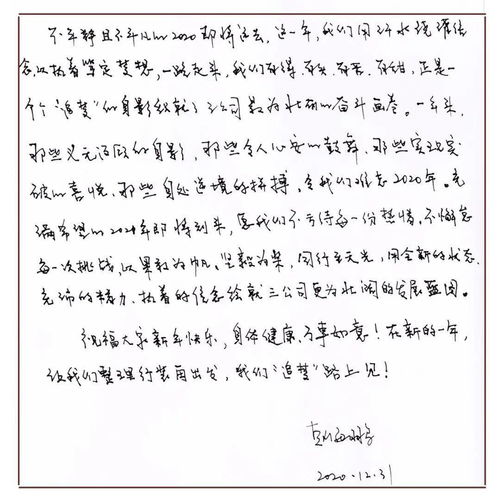 不平静且不平凡的2020即将过去，这一年，我们用汗水浇灌信
念，以执着坚定梦想，一路走来，我们有得、有失、有苦、有甜，正是一
个个“追梦”的身影绘就了三公司最为壮丽的奋斗画卷。一年来，
那些义无反顾的身影，那些令人心安的鼓舞、那些实现突
破的喜悦、那些身处逆境的拼搏。令我们难忘2020年。充
满希望的2021年即将到来，愿我们不亏待每一份热情、不懈怠
每一次挑战，以果敢为帆、坚毅为桨，同行至天光，用全新的状态、
充沛的精力、执着的信念绘就三公司更为壮阔的发展蓝图。
祝福大家新年快乐，身体健康、万事如意！在新的一年，
让我们整理行装再出发，我们“追梦”路上见！
2020.12.31